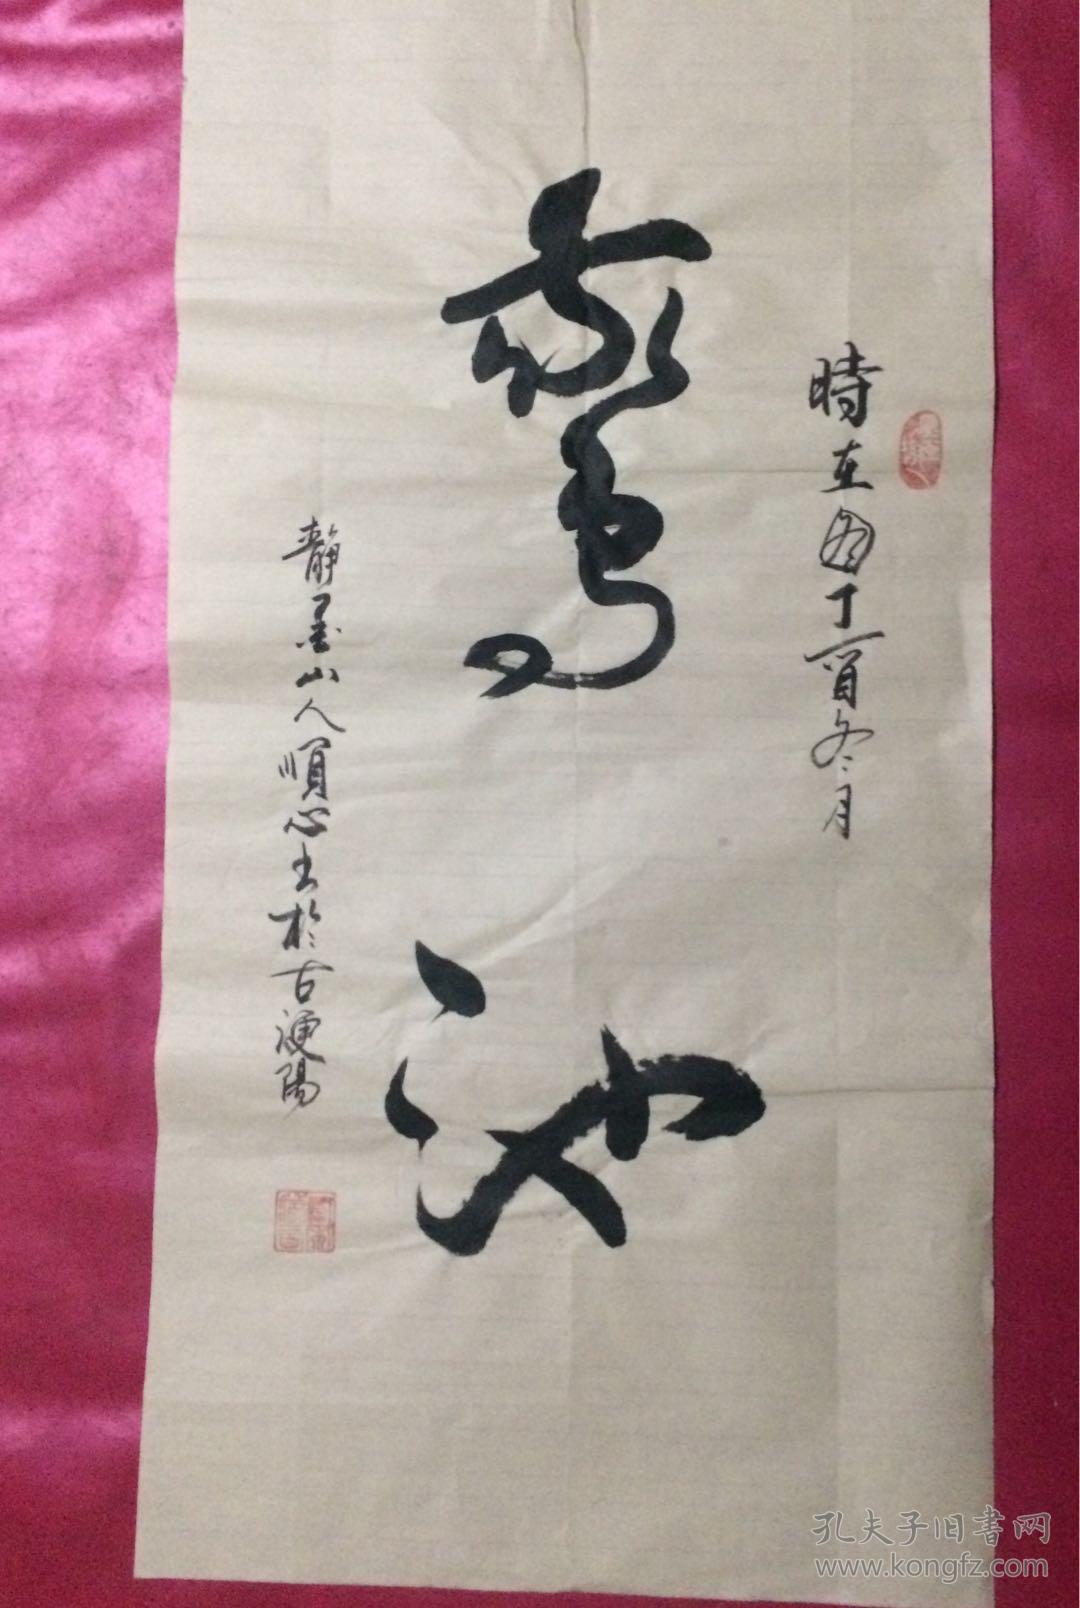 時在丁酉冬月
鵞池
靜墨山人順心书於古梗陽
孔夫子旧書网
www.kongfz.com